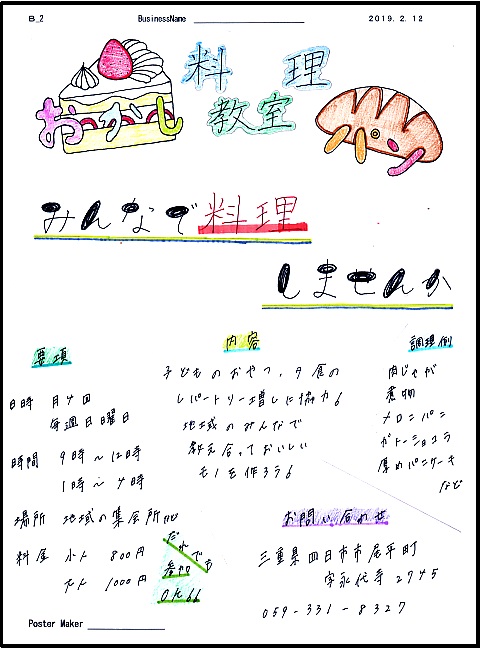 B_2 BusinessName 2019. 2. 12
料理
おかし 教室 パン
みんなで料理
しませんか
要項
日時 月4回
毎週日曜日
時間 9時～12時
1時～4時
場所 地域の集会所他
料金 小人 800円
大人 1000円
だれでも
参加
OK
内容
子どものおやつ、夕食の
レパートリー増しに協力
地域のみんなで
教え合っておいしい
モノを作ろう
調理例
肉じゃが
煮物
メロンパン
ガトーショコラ
厚めパンケーキ
など
お問い合わせ
三重県四日市市尾平町
字永代寺2745
059-331-8327
Poster Maker